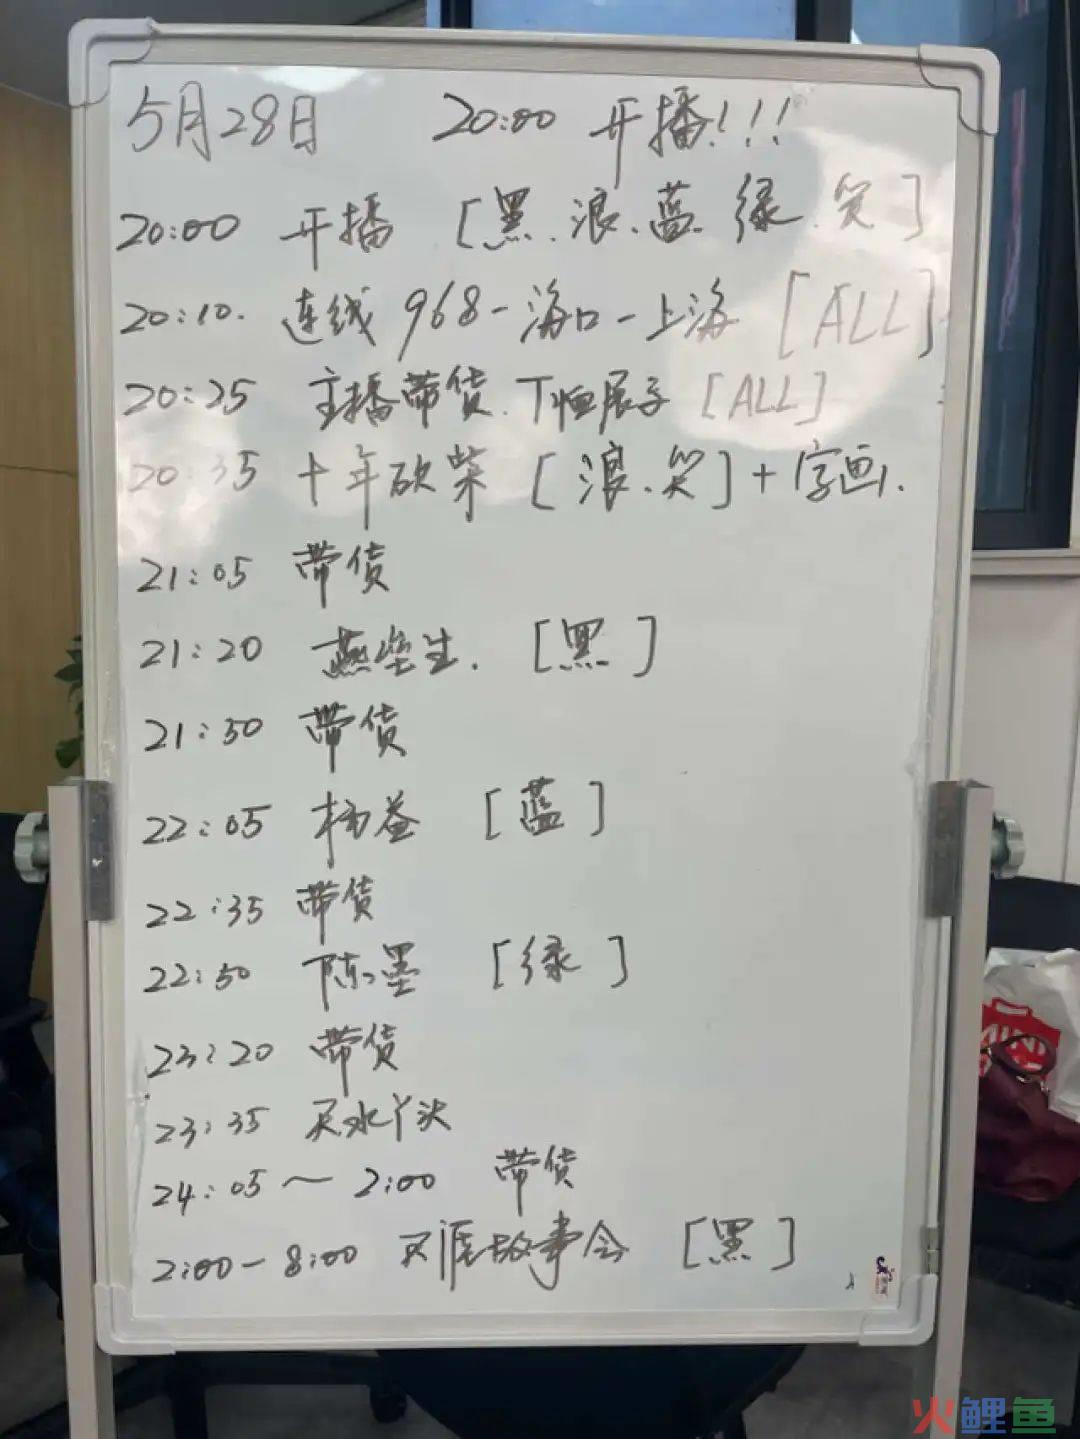 5月28日 20:00 开播!!!
20:00 开播 [黑.浪、蓝.绿.笑]
20:10. 连线 968-海口-上海 [ALL]
20:25 主播带货. T恤展子 [ALL]
20:35 十年砍柴 [浪、笑]+字画.
21:05 带货
21:20 燕垒生. [黑]
21:50 带货
22:05 杨益 [蓝]
22:35 带货
22:50 陈墨 [绿]
23:20 带货
23:35 天水丫头
24:05~2:00 带货
2:00-8:00 天涯故事会 [黑]
MINI
火鲤鱼